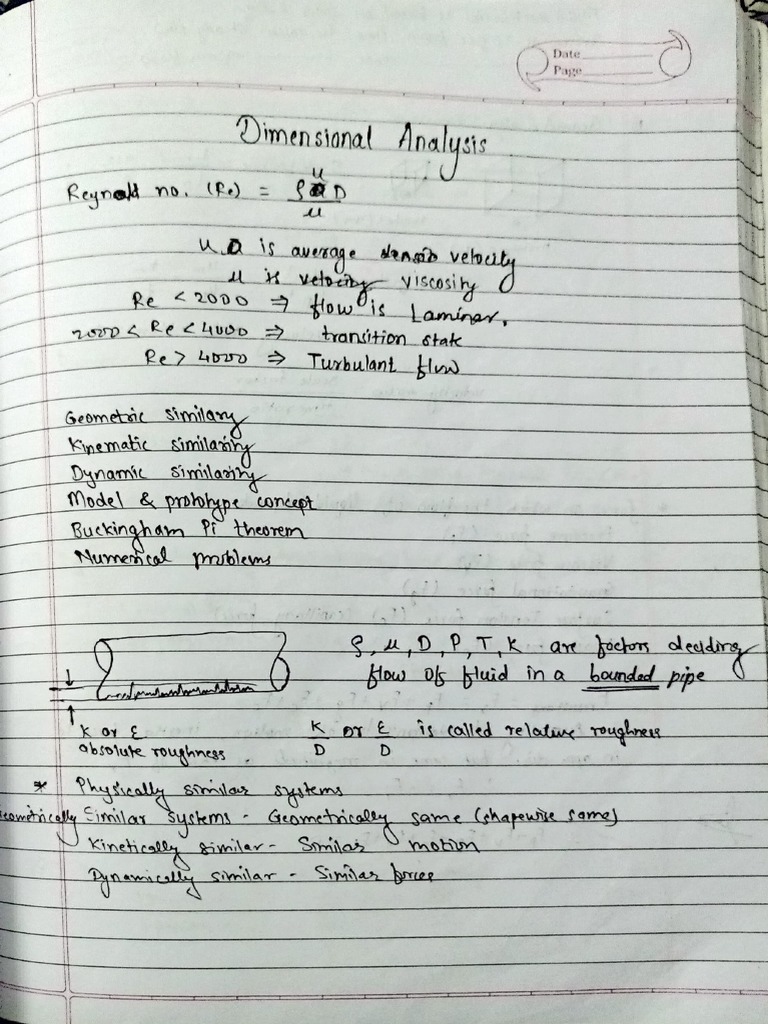 Date
Page
Dimensional Analysis
Reynold no. (Re) = ρ u D / μ
u is average velocity
μ is viscosity
Re < 2000 ⇒ flow is Laminar.
2000 < Re < 4000 ⇒ transition state
Re > 4000 ⇒ Turbulant flow
Geometric similary
Kinematic similarity
Dynamic similarity
Model & prototype concept
Buckingham Pi theorem
Numerical problems
ρ, μ, D, P, T, K are factors deciding
flow of fluid in a bounded pipe
K or ε
absolute roughness
K/D or ε/D is called relative roughness
* Physically similar systems
Geometrically Similar Systems - Geometrically same (shapewise same)
Kinetically similar - Similar motion
Dynamically similar - Similar forces